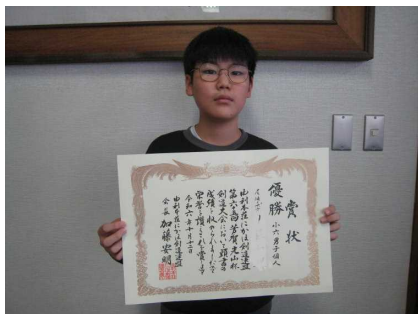 賞状
優勝
小六男子個人
由利本荘にかほ剣道連盟
剣道大会において頭書の
成績を収められましたので
栄誉を讃えこれを賞します
令和六年十月十二日
由利本荘にかほ剣道連盟
会長 加藤宏明